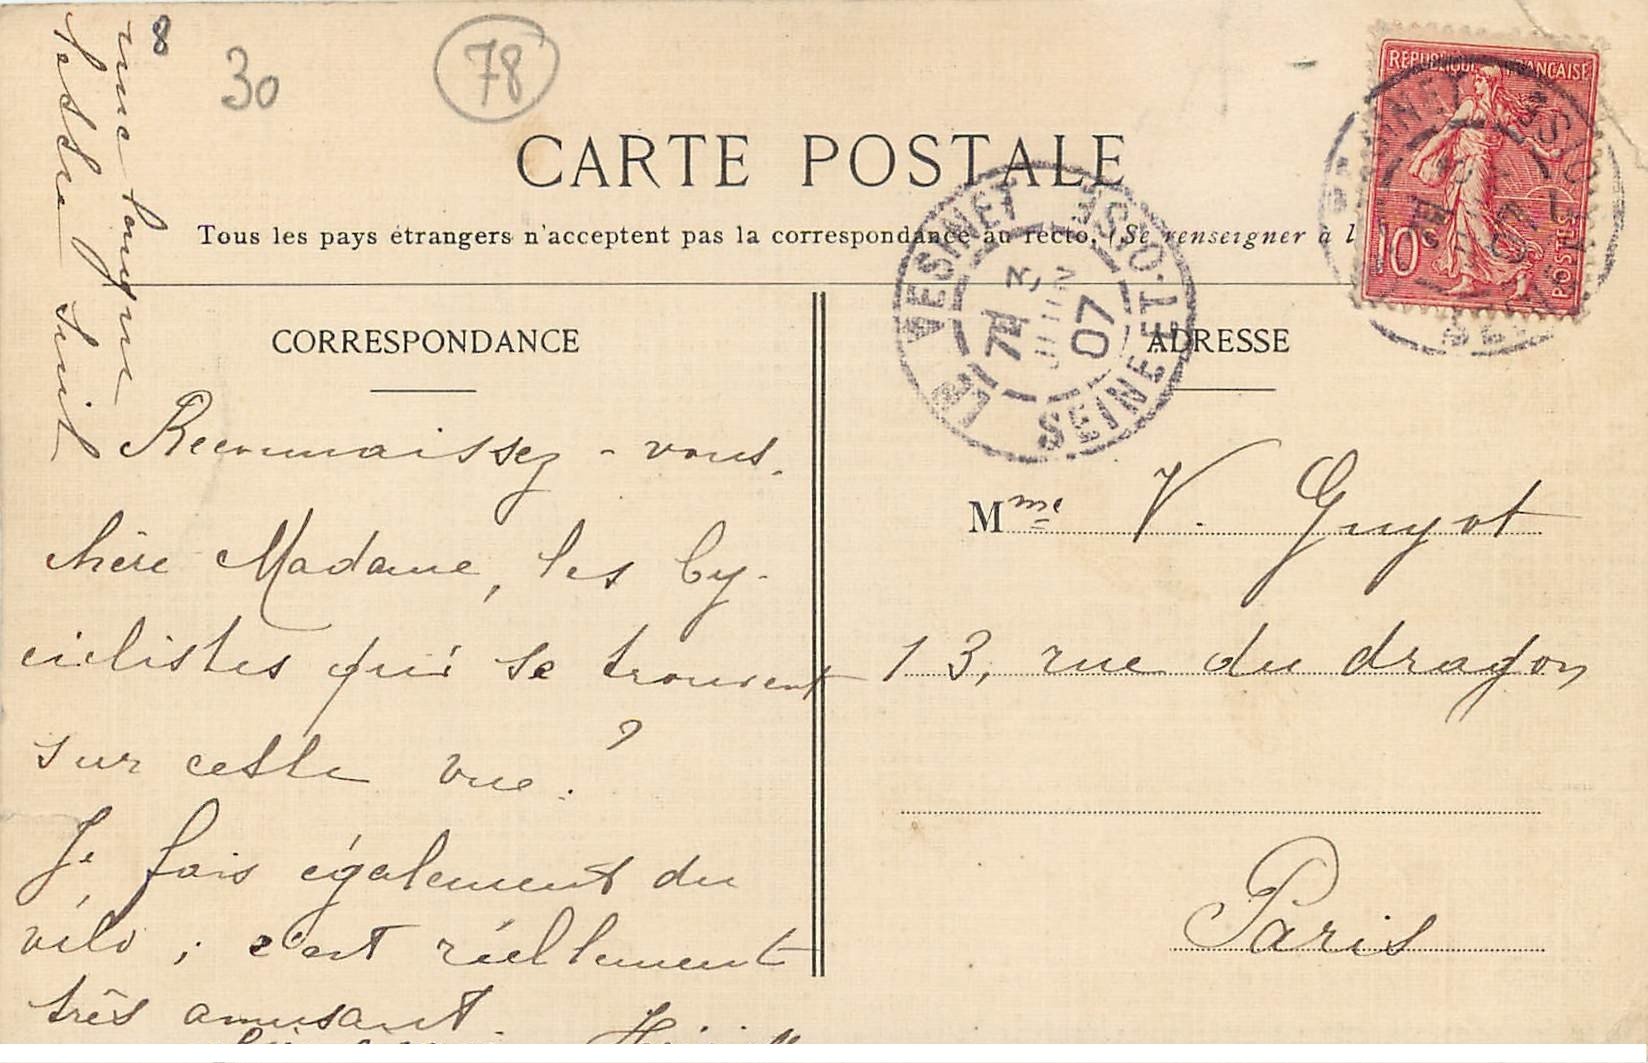 8
30
78
CARTE POSTALE
Tous les pays étrangers n'acceptent pas la correspondance au recto. (Se renseigner à l
CORRESPONDANCE
ADRESSE
REPUBLIQUE FRANÇAISE
10c
POSTES
LE VESNET
SEINE-ET-OISE
7E
3
JUIN
07
Reconnaissez-vous,
chère Madame, les Cy-
ciclistes qui se trouvent
sur cette vue ?
Je fais également du
vélo ; c'est réellement
très amusant.
une longue
lettre suit
Mme V. Guyot
13, rue du dragon
Paris